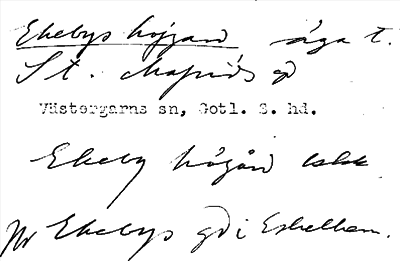 Ekebys hojgard äga t.
St. Mafrids gd
Västergarns sn, Gotl. S. hd.
Ekeby högård
pr Ekebys gd i Eskelhem.